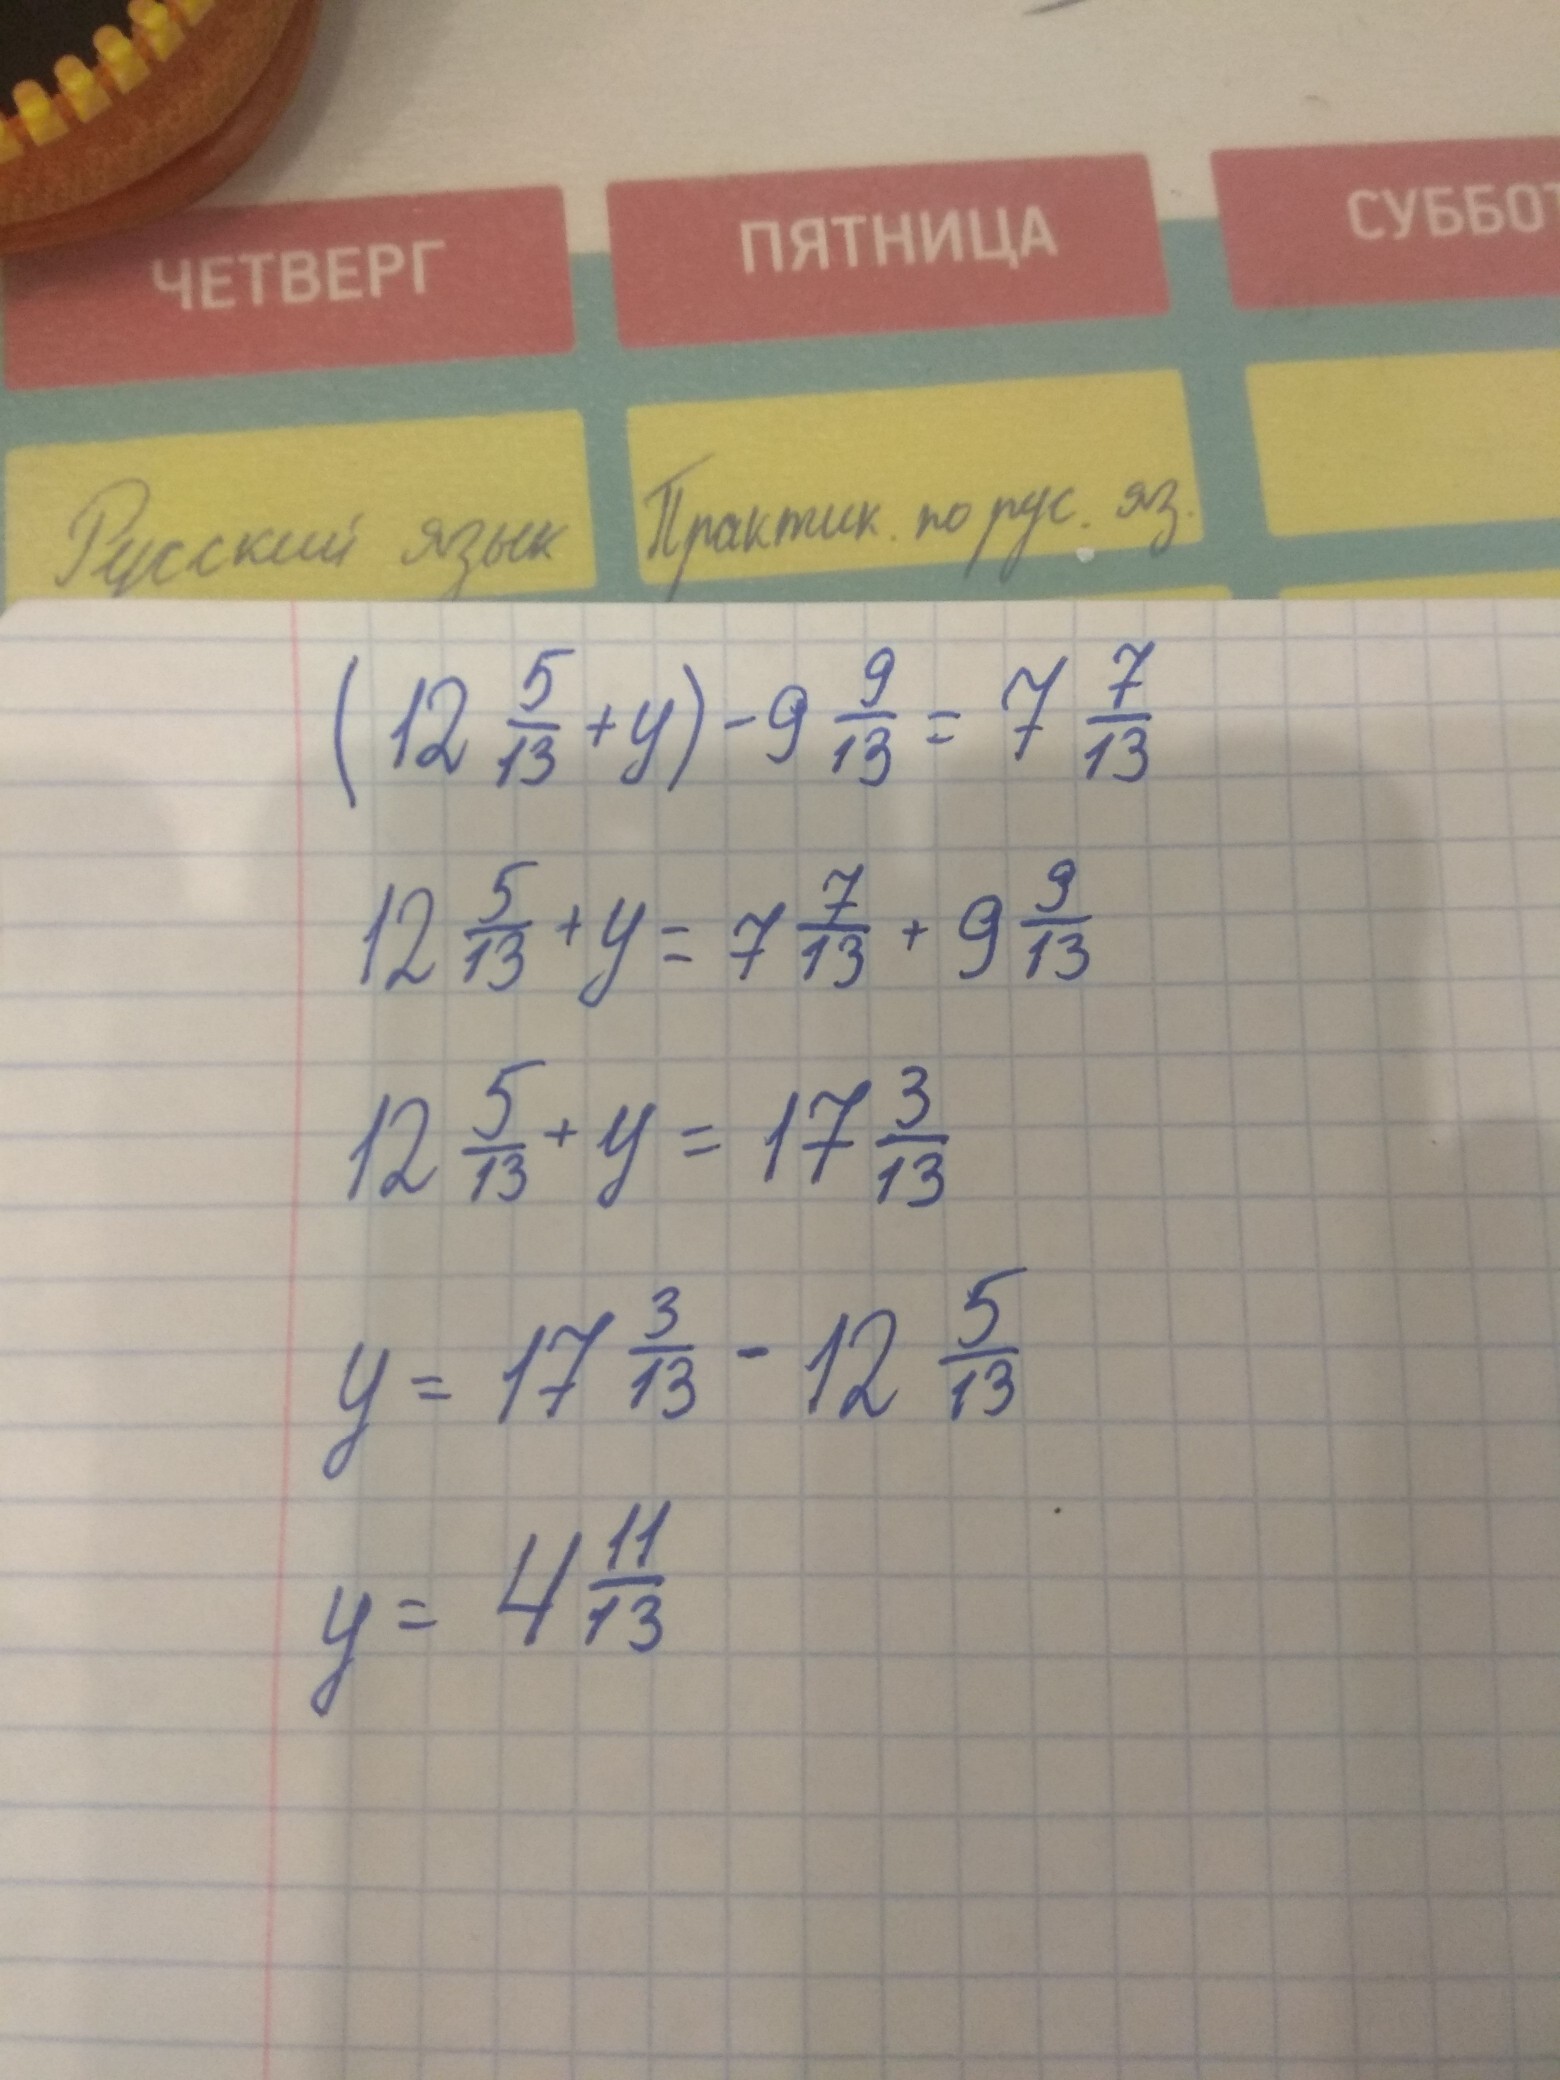 ЧЕТВЕРГ ПЯТНИЦА СУББОТ
Русский язык Практик. по рус. яз.
(12 5/13 + y) - 9 9/13 = 7 7/13
12 5/13 + y = 7 7/13 + 9 9/13
12 5/13 + y = 17 3/13
y = 17 3/13 - 12 5/13
y = 4 11/13